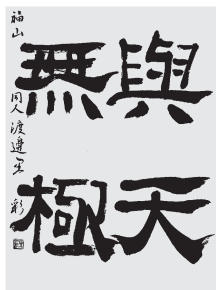 與天
無極
福山 同人 渡邉玉彩